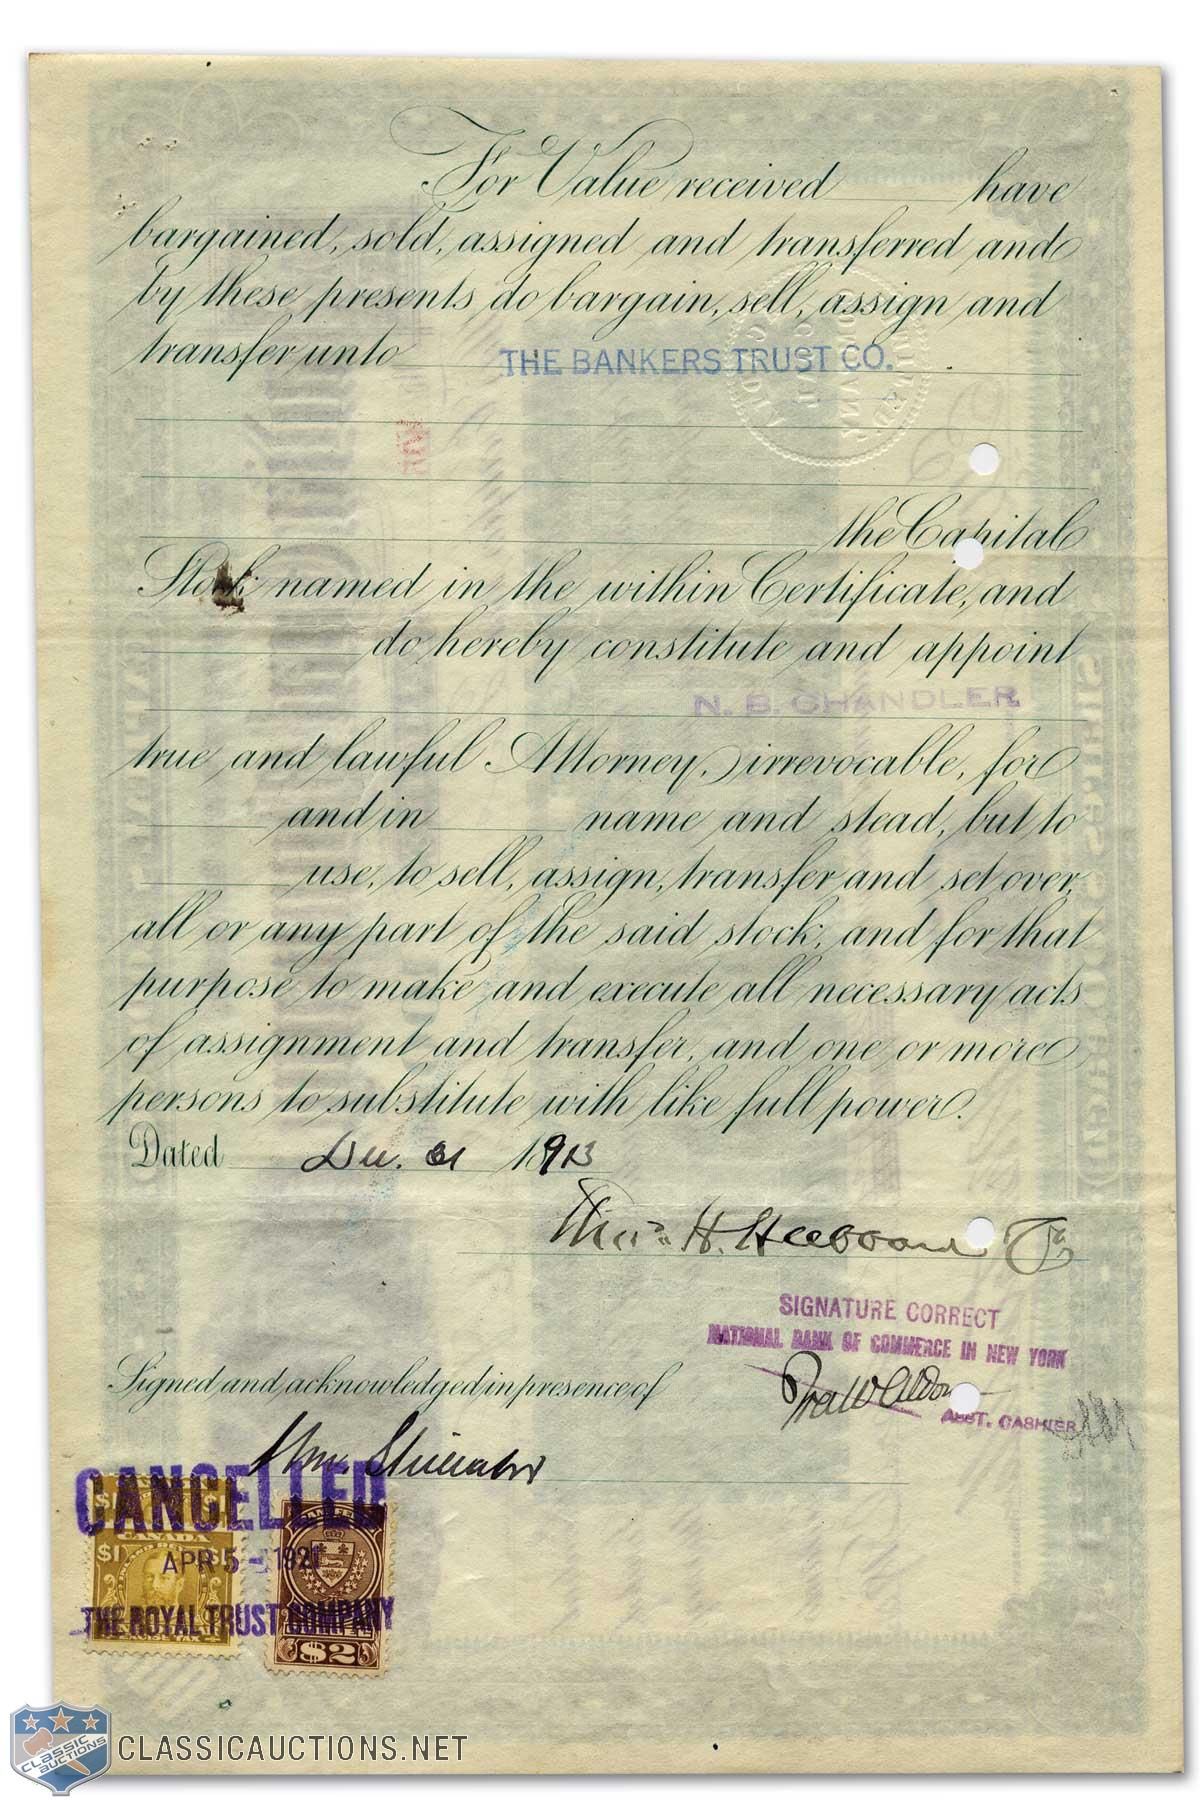 For Value received have
bargained, sold, assigned and transferred and
by these presents do bargain, sell, assign and
transfer unto THE BANKERS TRUST CO.
the Capital
Stock named in the within Certificate, and
do hereby constitute and appoint
N. B. CHANDLER
true and lawful Attorney, irrevocable, for
and in name and stead, but to
use, to sell, assign, transfer and set over,
all or any part of the said stock, and for that
purpose to make and execute all necessary acts
of assignment and transfer, and one or more
persons to substitute with like full power.
Dated Dec. 31 1913
H. Hubbard
SIGNATURE CORRECT
NATIONAL BANK OF COMMERCE IN NEW YORK
ASST. CASHIER
Signed and acknowledged in presence of
Wm.
CANCELLED
APR 5 - 1921
THE ROYAL TRUST COMPANY
CANADA
$1
$2
CLASSIC AUCTIONS
CLASSICAUCTIONS.NET